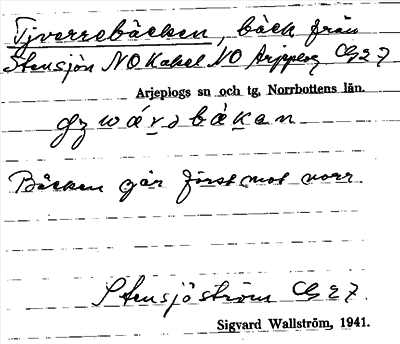 Tjverrebäcken, bäck från
Stensjön NO Kakel NO Arjeplog CG 27
Arjeplogs sn och tg, Norrbottens län.
Bäcken går först mot norr
Stensjöström CG 27.
Sigvard Wallström, 1941.